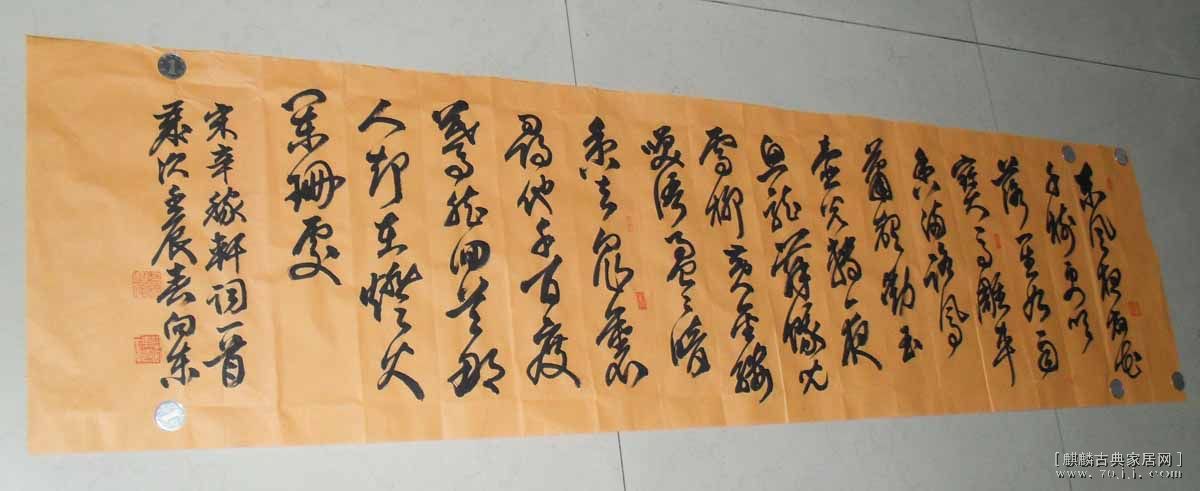 东风夜放花
千树更吹
落星如雨
宝马雕车
香满路凤
萧声动玉
壶光转一夜
鱼龙舞蛾儿
雪柳黄金缕
笑语盈々暗
香去众里
寻他千百度
蓦然回首那
人却在灯火
阑珊处
宋辛稼轩词一首
岁次壬辰春向东
1
[麒麟古典家居网]
www.70jj.com